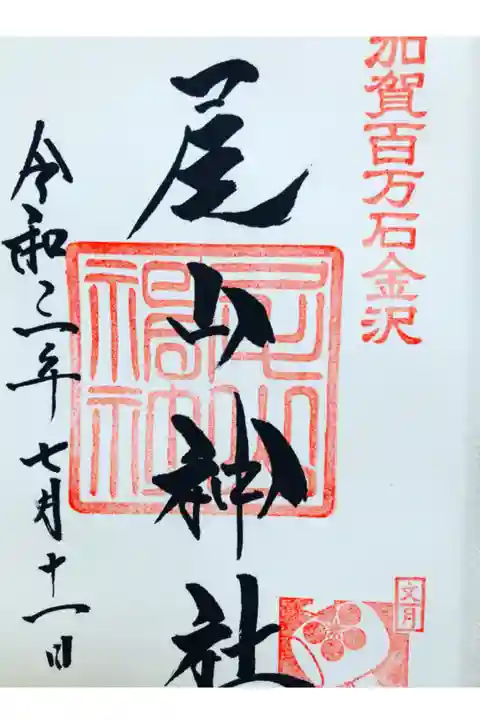 加賀百万石金沢
尾山神社
文月
令和三年七月十一日